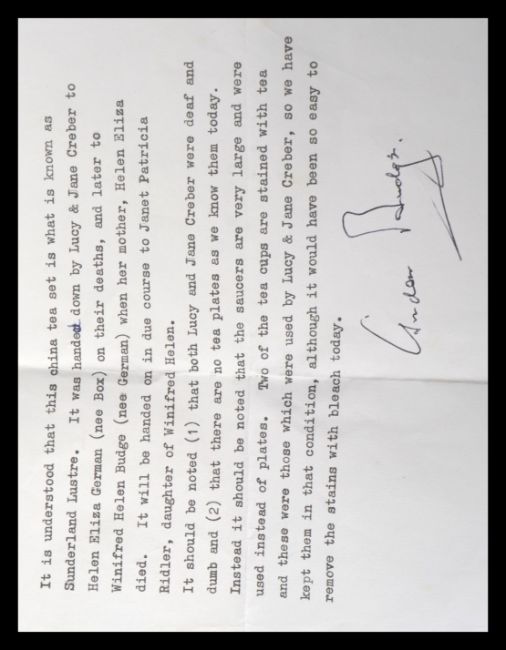 It is understood that this china tea set is what is known as
Sunderland Lustre. It was handed down by Lucy & Jane Creber to
Helen Eliza German (nee Box) on their deaths, and later to
Winifred Helen Budge (nee German) when her mother, Helen Eliza
died. It will be handed on in due course to Janet Patricia
Ridler, daughter of Winifred Helen.
It should be noted (1) that both Lucy and Jane Creber were deaf and
dumb and (2) that there are no tea plates as we know them today.
Instead it should be noted that the saucers are very large and were
used instead of plates. Two of the tea cups are stained with tea
and these were those which were used by Lucy & Jane Creber, so we have
kept them in that condition, although it would have been so easy to
remove the stains with bleach today.